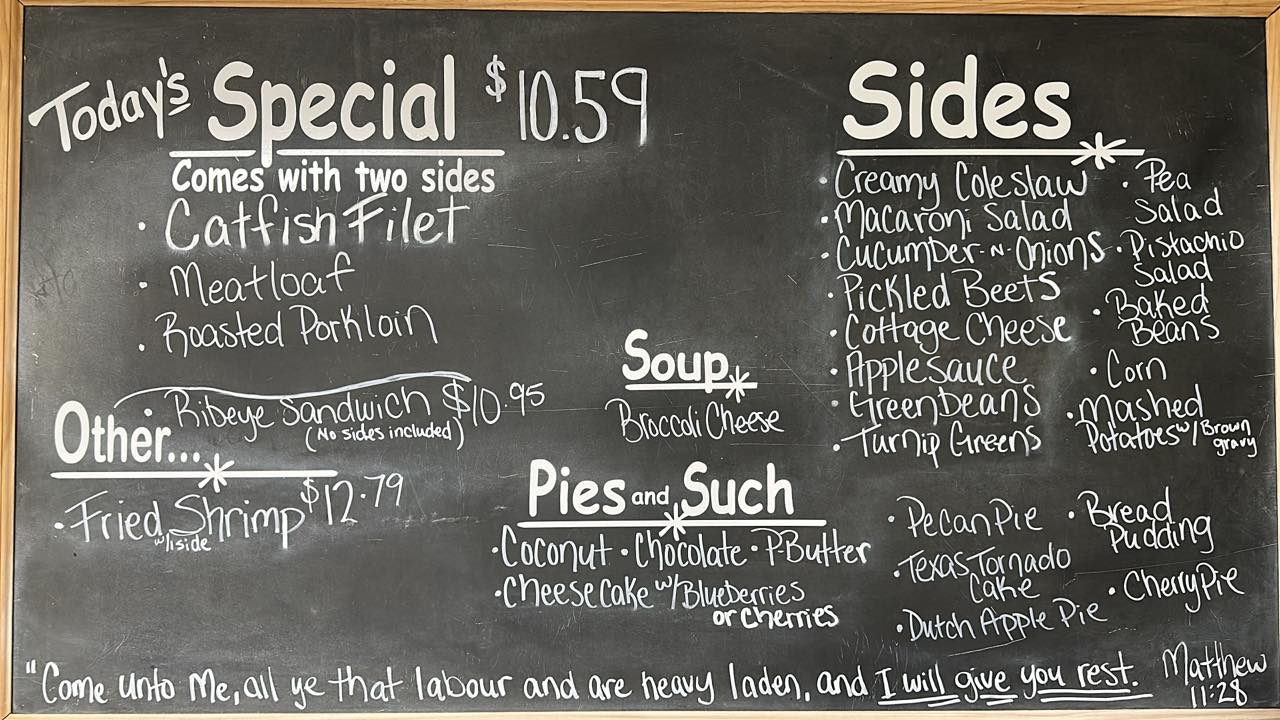 Today's Special $10.59
Comes with two sides
· Catfish Filet
· Meatloaf
· Roasted Porkloin
· Ribeye Sandwich $10.95
(No sides included)
Other...
· Fried Shrimp $12.79
w/1side
Soup
Broccoli Cheese
Sides
· Creamy Coleslaw
· Macaroni Salad
· Cucumber-N-Onions
· Pickled Beets
· Cottage Cheese
· Applesauce
· Green Beans
· Turnip Greens
· Pea
Salad
· Pistachio
Salad
· Baked
Beans
· Corn
· Mashed
Potatoes w/Brown
gravy
Pies and Such
· Coconut · Chocolate · P-Butter
· Cheesecake w/Blueberries
or cherries
· Pecan Pie
· Texas Tornado
Cake
· Dutch Apple Pie
· Bread
Pudding
· Cherry Pie
"Come unto Me, all ye that labour and are heavy laden, and I will give you rest. Matthew
11:28